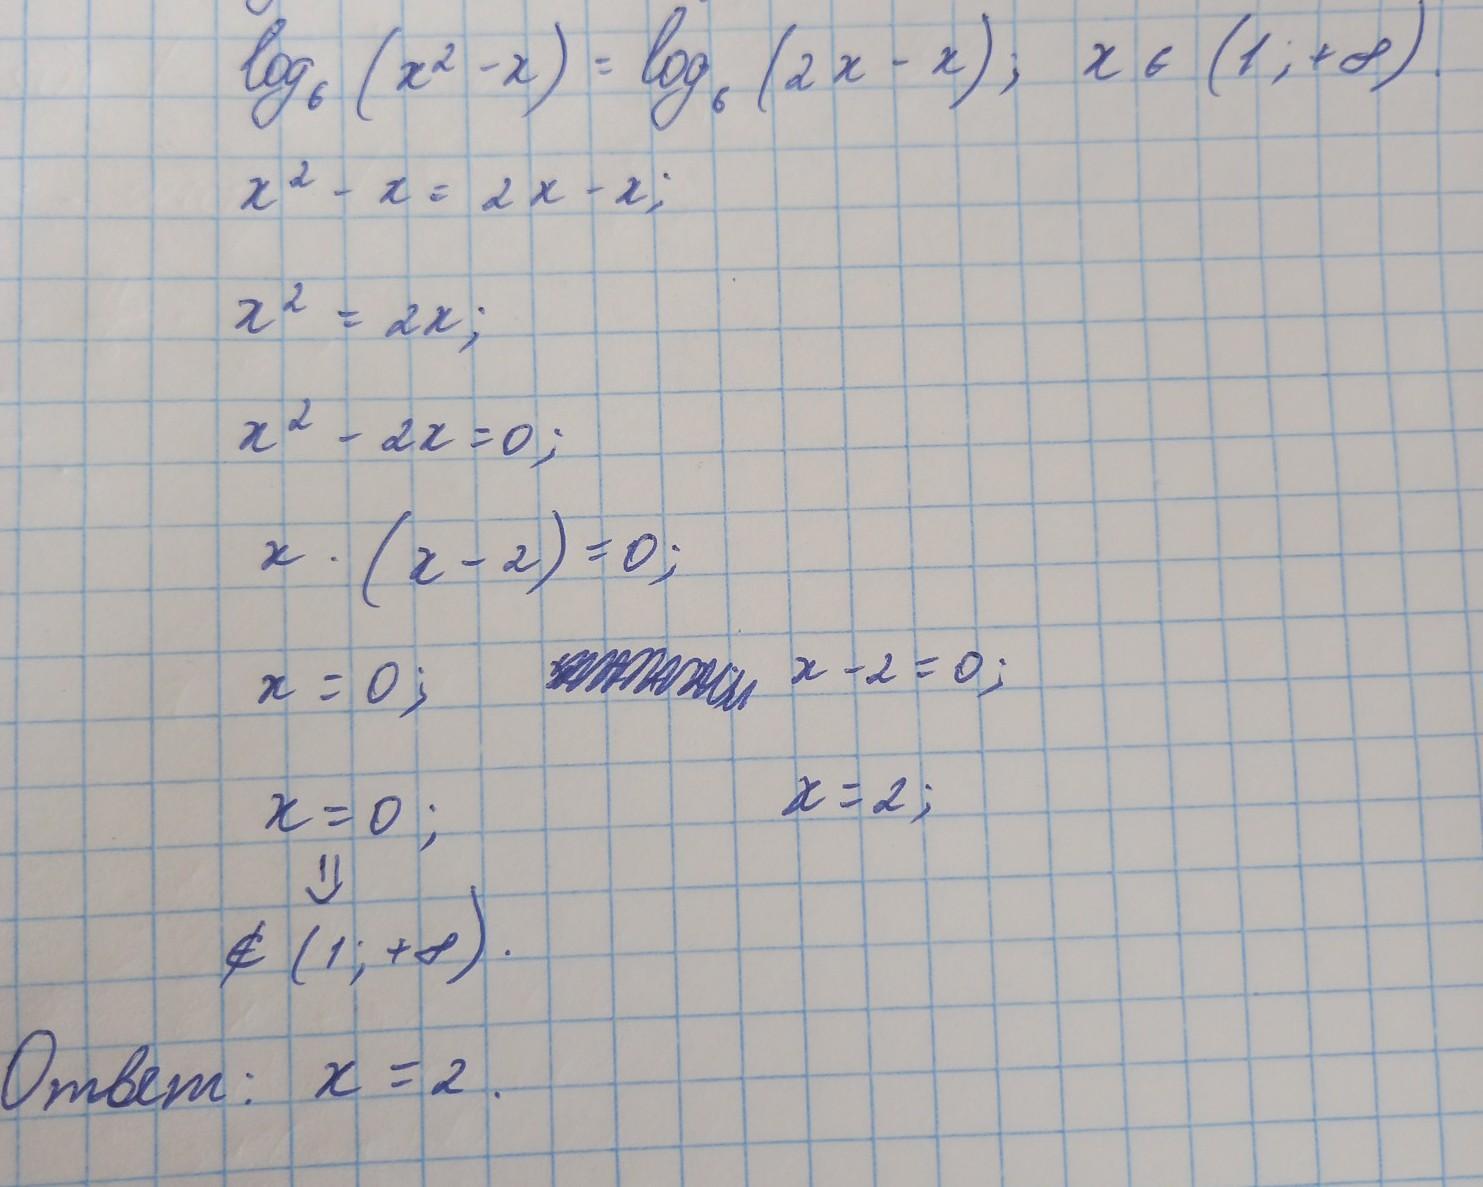 log₆ (x² - x) = log₆ (2x - x); x ∈ (1; +∞).
x² - x = 2x - x;
x² = 2x;
x² - 2x = 0;
x · (x - 2) = 0;
x = 0; x - 2 = 0;
x = 0; x = 2;
⇓
∉ (1; +∞).
Ответ: x = 2.